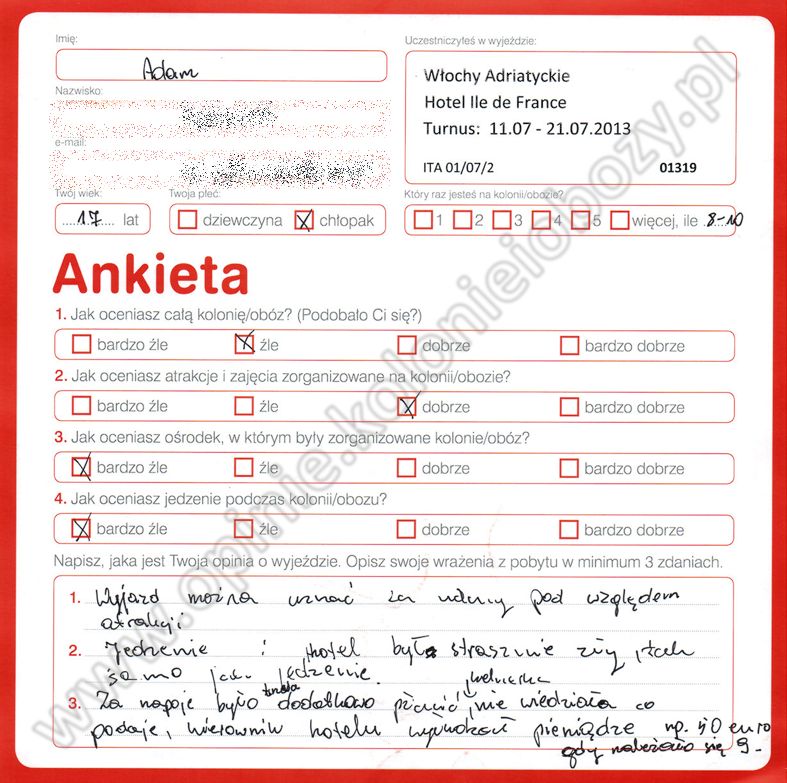 Imię:
Adam
Nazwisko:
e-mail:
Twój wiek:
17 lat
Twoja płeć:
dziewczyna X chłopak
Uczestniczyłeś w wyjeździe:
Włochy Adriatyckie
Hotel Ile de France
Turnus: 11.07 - 21.07.2013
ITA 01/07/2 01319
Który raz jesteś na kolonii/obozie?
1 2 3 4 5 więcej, ile 8-10
Ankieta
1. Jak oceniasz całą kolonię/obóz? (Podobało Ci się?)
bardzo źle X źle dobrze bardzo dobrze
2. Jak oceniasz atrakcje i zajęcia zorganizowane na kolonii/obozie?
bardzo źle źle X dobrze bardzo dobrze
3. Jak oceniasz ośrodek, w którym były zorganizowane kolonie/obóz?
X bardzo źle źle dobrze bardzo dobrze
4. Jak oceniasz jedzenie podczas kolonii/obozu?
X bardzo źle źle dobrze bardzo dobrze
Napisz, jaka jest Twoja opinia o wyjeździe. Opisz swoje wrażenia z pobytu w minimum 3 zdaniach.
1. Wyjazd można uznać za udany pod względem
atrakcji
2. Jedzenie i hotel był strasznie zły, tak
samo jak jedzenie.
3. Za napoje było trzeba dodatkowo płacić, kelnerka nie wiedziała co
podaje, kierownik hotelu pieniądze np. 50 euro
gdy należało się 9.-
www.opinie.kolonieiobozy.pl